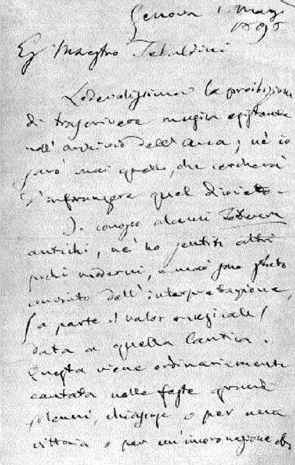 Genova 1 mag
1896
Eg Maestro Tebaldini
Lodevolissima la proibizione
di trascrivere musica esistente
nell'archivio dell'Arca; nè io
sarò mai quello che cercherà
d'infrangere quel divieto -
Io conosco alcuni Tedeum
antichi, nè ho sentiti altri
pochi moderni, e mai sono stato
convinto dell'interpretazione,
(a parte il valor musicale)
data a quella Cantica.
Questa viene ordinariamente
cantata nelle feste grandi
solenni, chiassose o per una
vittoria o per un'incoronazione